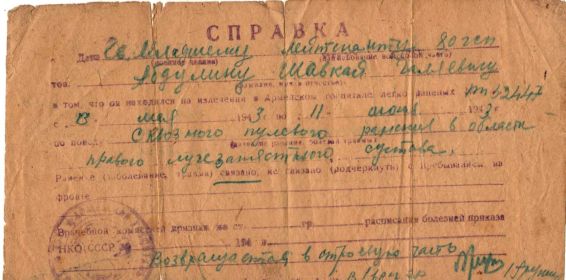 СПРАВКА
Дана Гв. Младшему лейтенанту 80 гсп
(воинское звание) (наименование воинской части)
тов. Абдулину Шавкай
(фамилия, имя и отчество)
в том, что он находился на излечении в Армейском госпитале легко раненых
с 8 мая 1943 г. по 11 июня 1943 г.
по поводу сквозного пулевого ранения в области
правого лучезапястного сустава.
Ранение (заболевание, травма) связано, не связано (подчеркнуть) с пребыванием на
фронте
Врачебной комиссией признан по ст. гр. расписания болезней приказа
НКО СССР № 194 г.
Возвращается в строевую часть